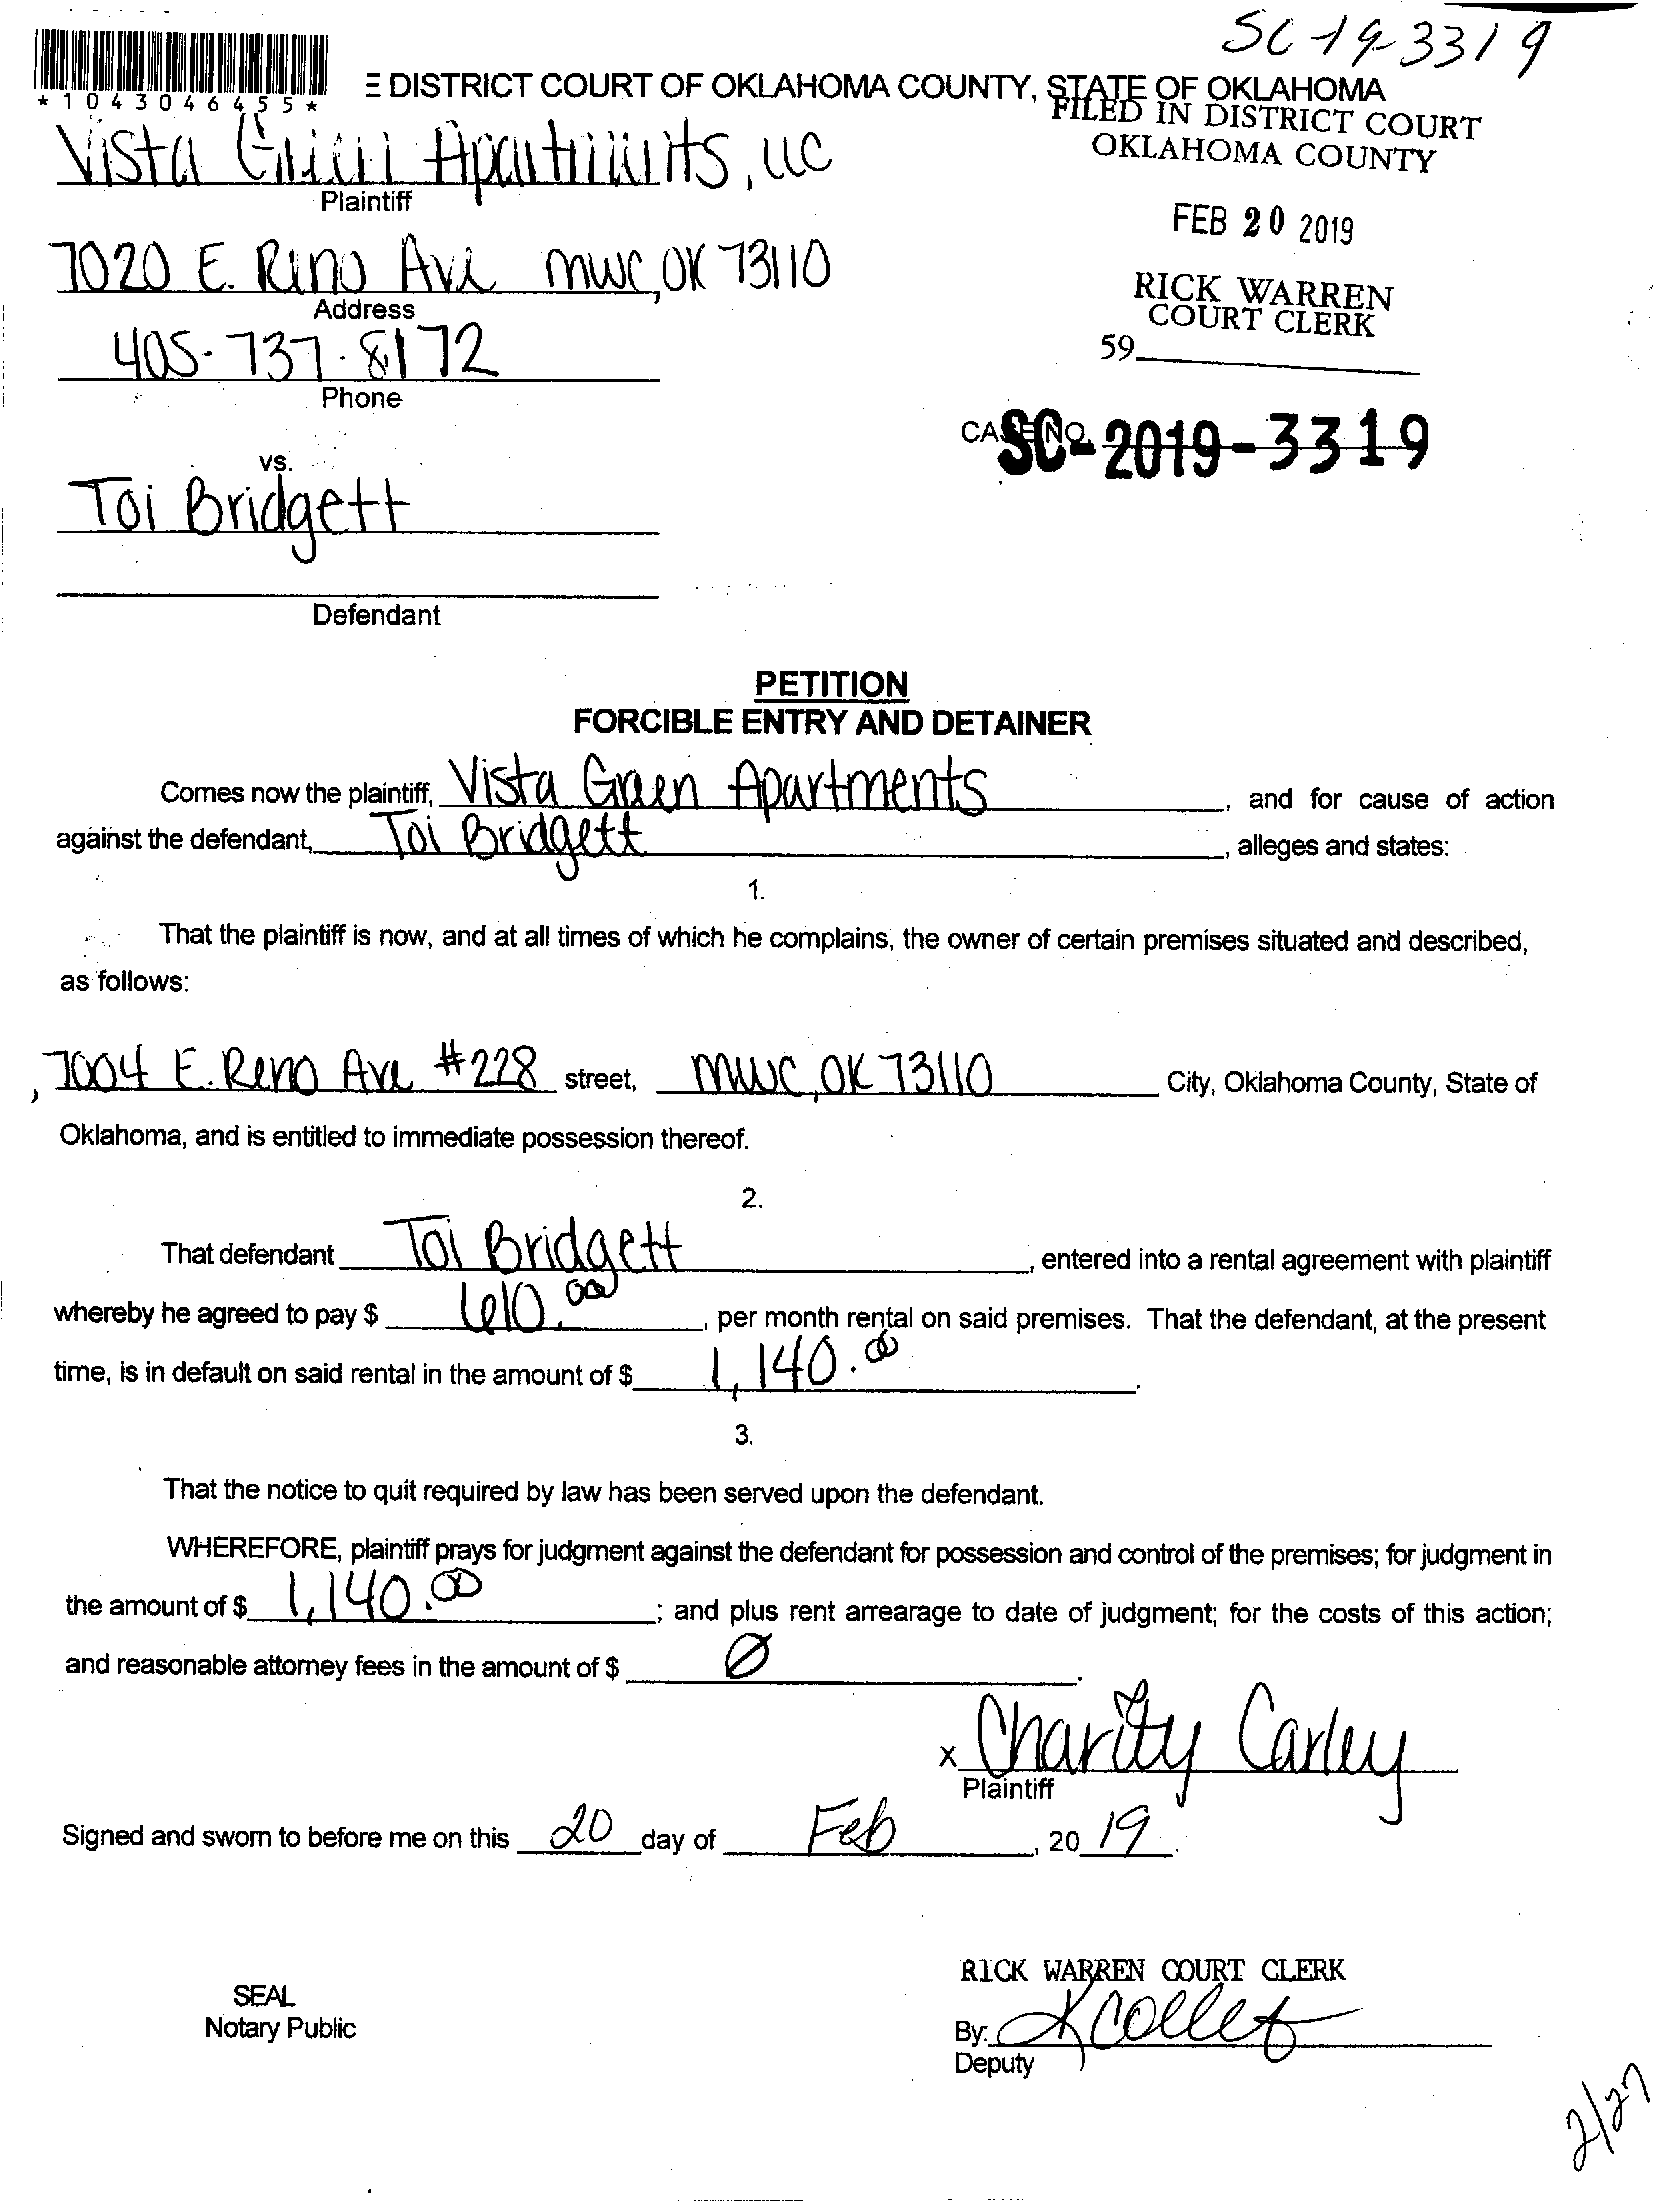 SC-19-3319
*1043046455*
E DISTRICT COURT OF OKLAHOMA COUNTY, STATE OF OKLAHOMA
FILED IN DISTRICT COURT
OKLAHOMA COUNTY
Vista Green Apartments, LLC
Plaintiff
FEB 20 2019
7020 E. Reno Ave MWC, OK 73110
Address
RICK WARREN
COURT CLERK
405-737-8172
59
Phone
CASE NO.
SC-2019-3319
vs.
Toi Bridgett
Defendant
PETITION
FORCIBLE ENTRY AND DETAINER
Comes now the plaintiff, Vista Green Apartments, and for cause of action
against the defendant, Toi Bridgett, alleges and states:
1.
That the plaintiff is now, and at all times of which he complains, the owner of certain premises situated and described,
as follows:
, 7004 E. Reno Ave #228 street, MWC, OK 73110 City, Oklahoma County, State of
Oklahoma, and is entitled to immediate possession thereof.
2.
That defendant Toi Bridgett, entered into a rental agreement with plaintiff
whereby he agreed to pay $ 610.00, per month rental on said premises. That the defendant, at the present
time, is in default on said rental in the amount of $ 1,140.00.
3.
That the notice to quit required by law has been served upon the defendant.
WHEREFORE, plaintiff prays for judgment against the defendant for possession and control of the premises; for judgment in
the amount of $ 1,140.00; and plus rent arrearage to date of judgment; for the costs of this action;
and reasonable attorney fees in the amount of $ Ø.
x Charity Carley
Plaintiff
Signed and sworn to before me on this 20 day of Feb, 2019.
RICK WARREN COURT CLERK
SEAL
Notary Public
By:
Deputy
2/27